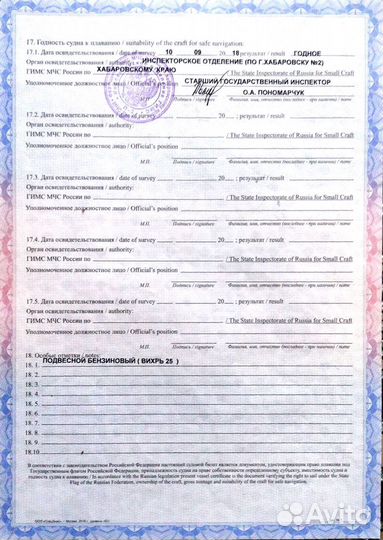 17. Годность судна к плаванию / suitability of the craft for safe navigation:
17.1. Дата освидетельствования / date of survey 10 09 20 18 результат / result ГОДНОЕ
Орган освидетельствования / authority: ИНСПЕКТОРСКОЕ ОТДЕЛЕНИЕ (ПО Г.ХАБАРОВСКУ №2)
ГИМС МЧС России по ХАБАРОВСКОМУ КРАЮ / The State Inspectorate of Russia for Small Craft
Уполномоченное должностное лицо / Official's position СТАРШИЙ ГОСУДАРСТВЕННЫЙ ИНСПЕКТОР
О.А. ПОНОМАРЧУК
М.П. Подпись / signature Фамилия, имя, отчество (последнее - при наличии) / name
17.2. Дата освидетельствования / date of survey 20 : результат / result
Орган освидетельствования / authority:
ГИМС МЧС России по / The State Inspectorate of Russia for Small Craft
Уполномоченное должностное лицо / Official's position
М.П. Подпись / signature Фамилия, имя, отчество (последнее - при наличии) / name
17.3. Дата освидетельствования / date of survey 20 : результат / result
Орган освидетельствования / authority:
ГИМС МЧС России по / The State Inspectorate of Russia for Small Craft
Уполномоченное должностное лицо / Official's position
М.П. Подпись / signature Фамилия, имя, отчество (последнее - при наличии) / name
17.4. Дата освидетельствования / date of survey 20 : результат / result
Орган освидетельствования / authority:
ГИМС МЧС России по / The State Inspectorate of Russia for Small Craft
Уполномоченное должностное лицо / Official's position
М.П. Подпись / signature Фамилия, имя, отчество (последнее - при наличии) / name
17.5. Дата освидетельствования / date of survey 20 : результат / result
ГИМС МЧС России по / The State Inspectorate of Russia for Small Craft
Уполномоченное должностное лицо / Official's position
М.П. Подпись / signature Фамилия, имя, отчество (последнее - при наличии) / name
18. Особые отметки / notes:
18. 1. ПОДВЕСНОЙ БЕНЗИНОВЫЙ ( ВИХРЬ 25 )
18. 2.
18. 3.
18. 4.
18. 5.
18. 6.
18. 7.
18. 8.
18. 9.
18.10.
В соответствии с законодательством Российской Федерации настоящий судовой билет является документом, удостоверяющим право плавания под
Государственным флагом Российской Федерации, принадлежность судна на праве собственности определенному субъекту, вместимость судна и
годность судна к плаванию / In accordance with the Russian legislation present vessel certificate is the document verifying the right to sail under the State
Flag of the Russian Federation, ownership of the craft, gross tonnage and suitability of the craft for safe navigation.
Avito